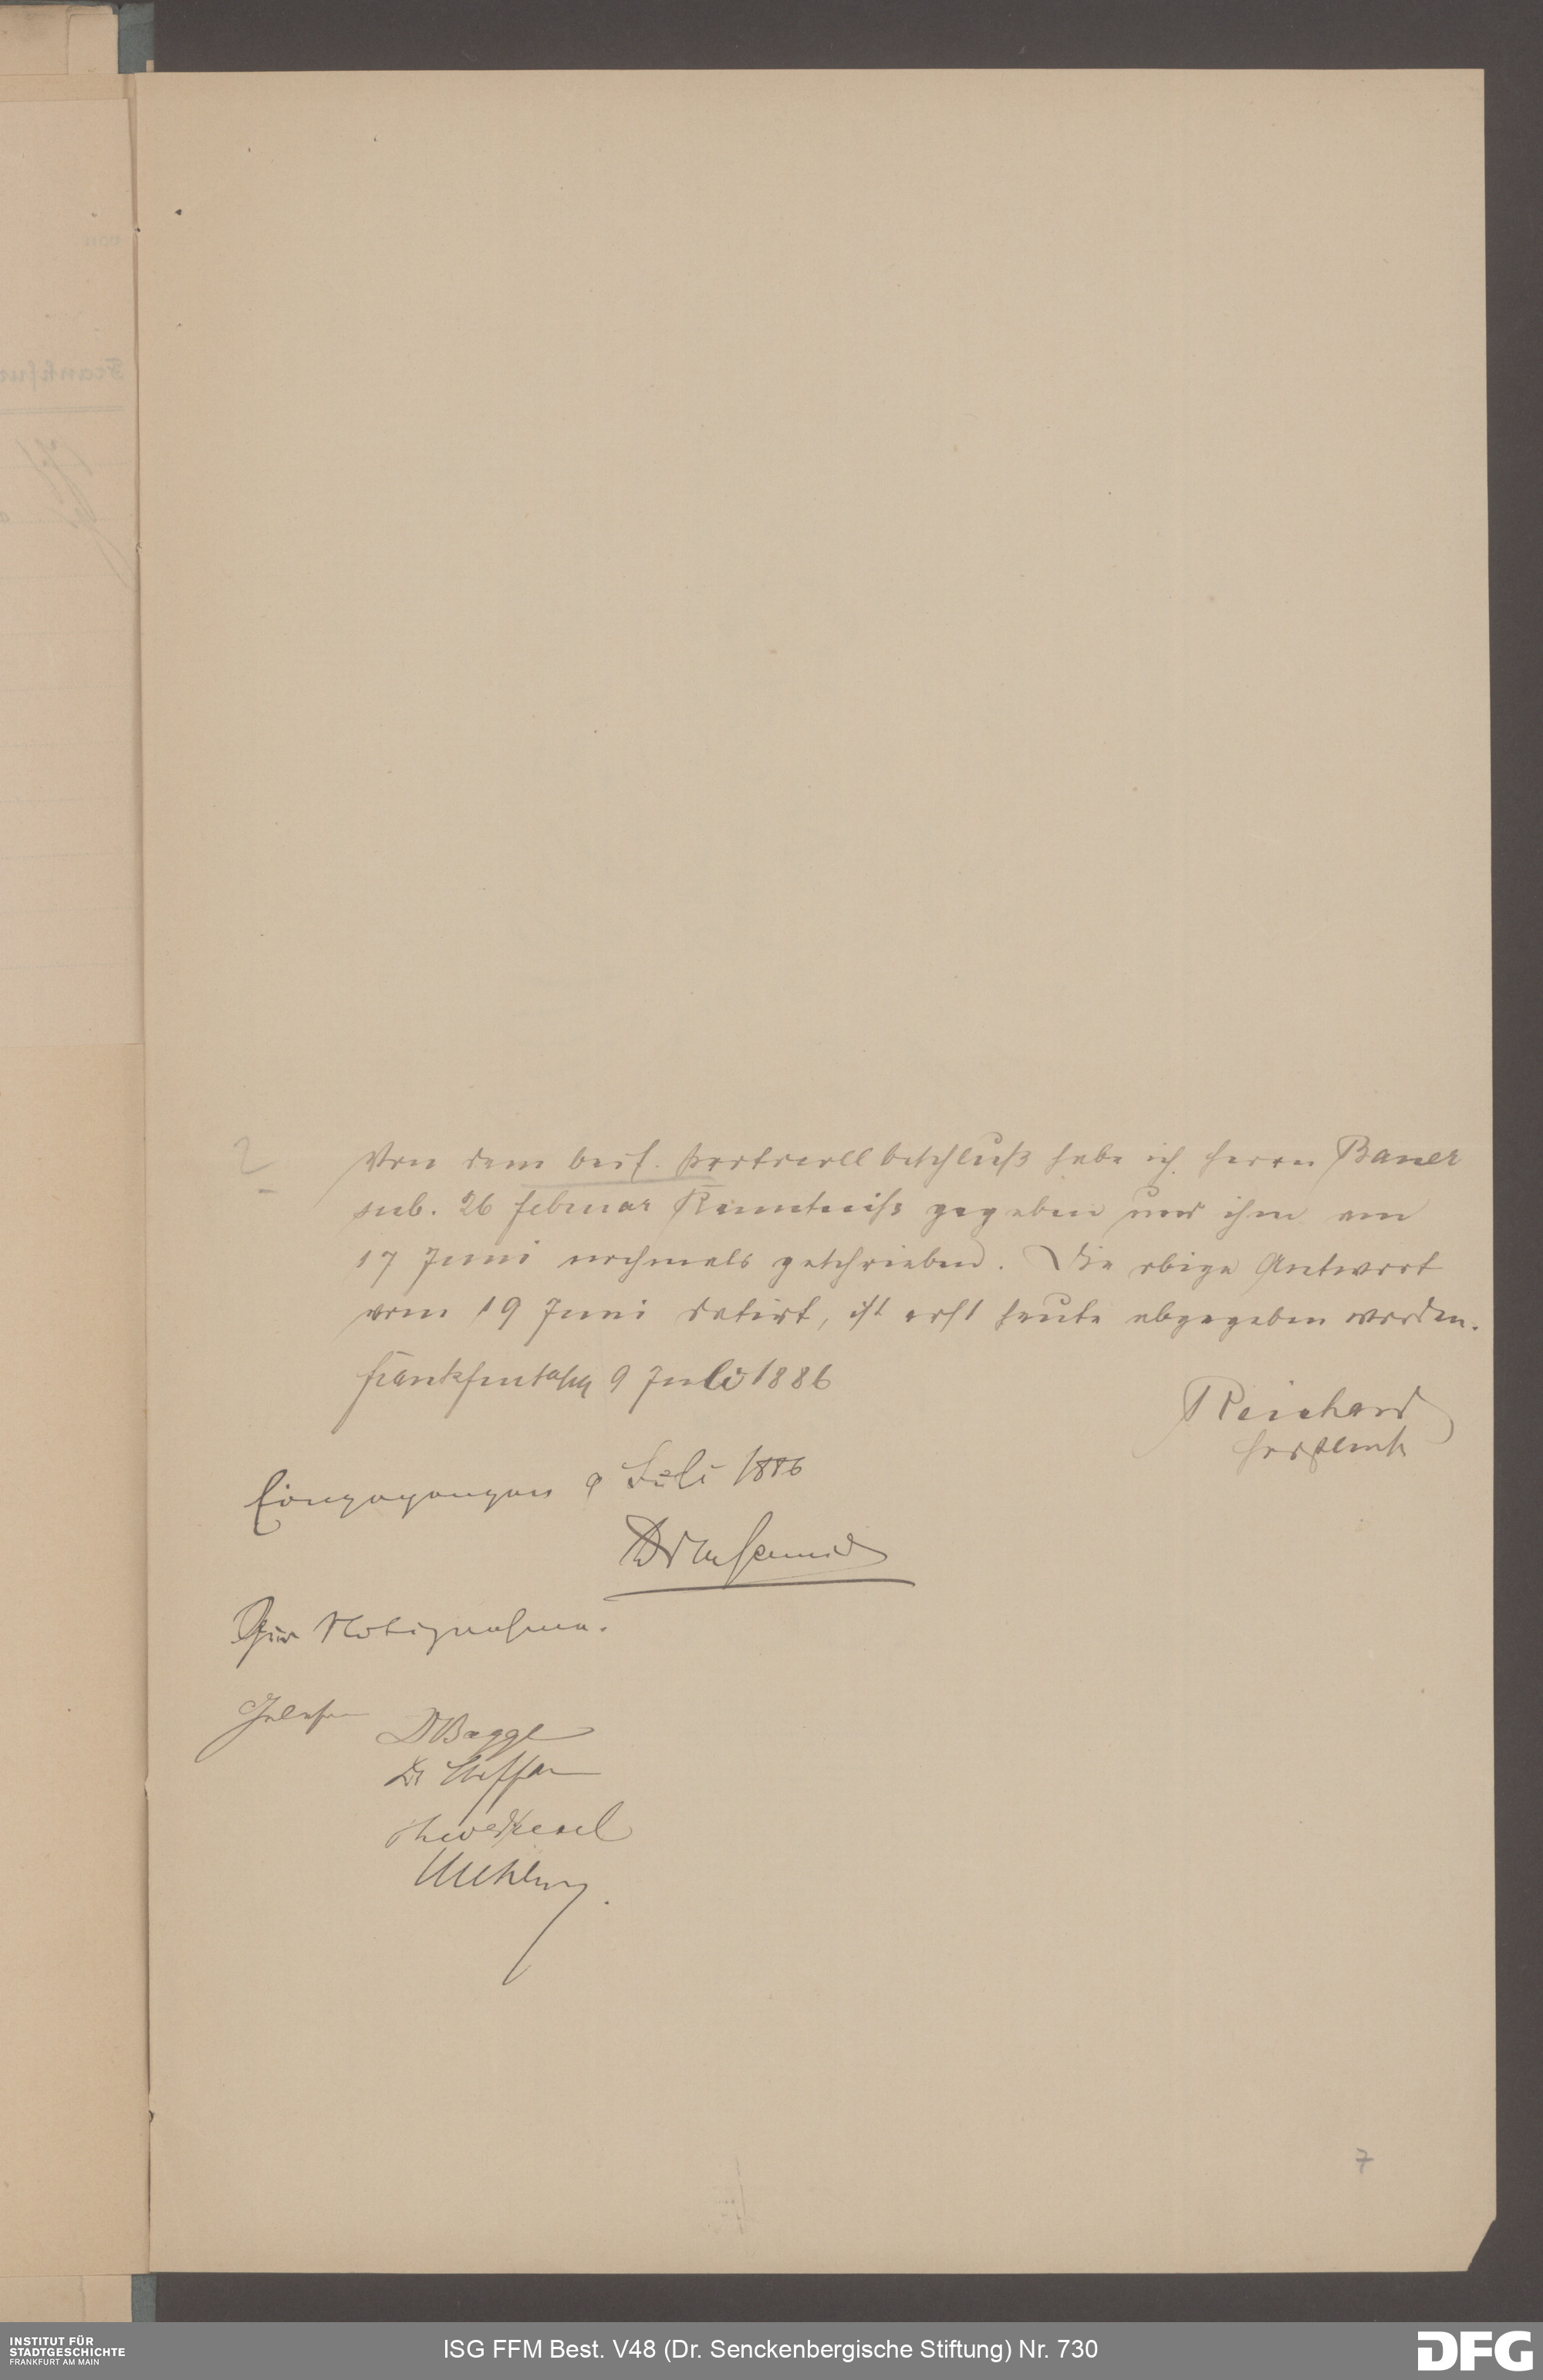 2
Von dem beif. Protocollbeschluß habe ich Herrn Bauer
sub. 26 Februar Kenntniß gegeben und ihm am
17 Juni nochmals geschrieben. Die obige Antwort
vom 19 Juni datirt, ist erst heute abgegeben worden.
Frankfurt a/M 9 Juli 1886
Reichard
Eingegangen 9 Juli 1886
Zur Notiznahme.
Gelesen Dr Bagge
Dr Steffan
7
INSTITUT FÜR
STADTGESCHICHTE
FRANKFURT AM MAIN
ISG FFM Best. V48 (Dr. Senckenbergische Stiftung) Nr. 730
DFG